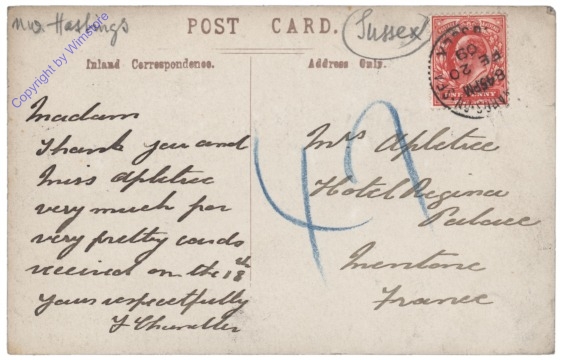 nr Hastings
POST CARD.
(Sussex)
Copyright by Wimstore
Inland Correspondence.
Address Only.
FE 20
09
8.45PM
ONE PENNY
Madam
Thank you and
Miss Apletree
very much for
very pretty cards
received on the 18th
yours respectfully
Mrs Apletree
Hotel Regina
Palace
Mentone
France